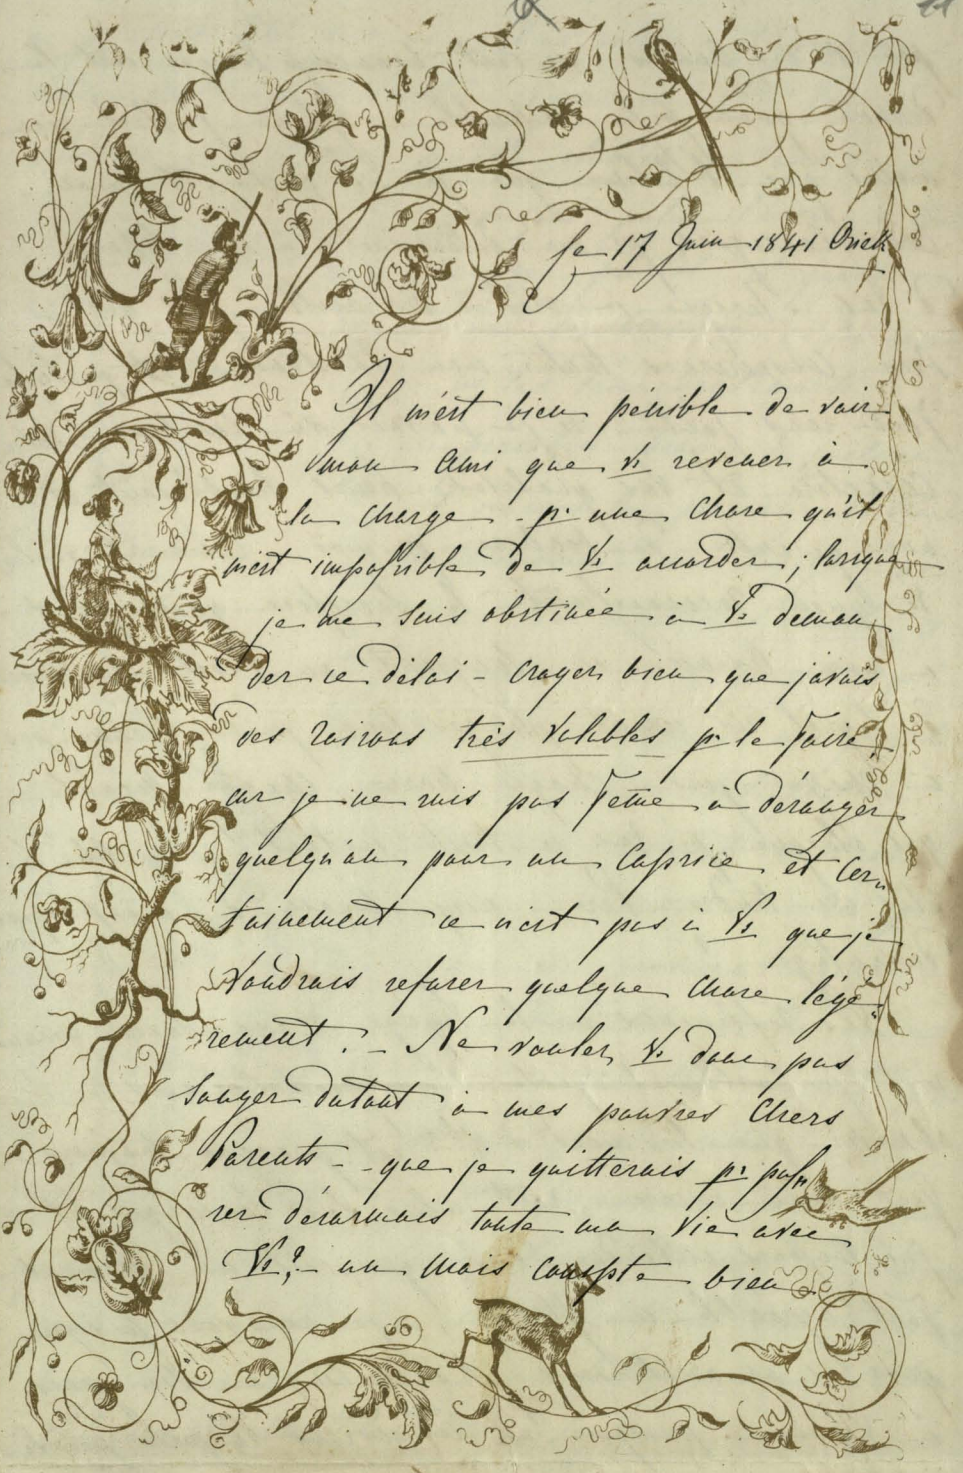 le 17 Juin 1841
Il m'est bien pénible de voir
mon Ami que Vs revenez à
la charge - pr une chose qu'il
m'est impossible de Vs accorder ; lorsque
je me suis obstinée à Vs deman
der ce délai - croyez bien que j'avais
des raisons très valables pr le faire,
car je ne suis pas femme à déranger
quelqu'un pour un caprice et cer-
tainement ce n'est pas à Vs que je
voudrais refuser quelque chose légè-
rement. - Ne voulez Vs donc pas
songer du tout à mes pauvres chers
Parents - que je quitterais pr pas-
ser désormais toute ma vie avec
Vs? - un mois compte bien